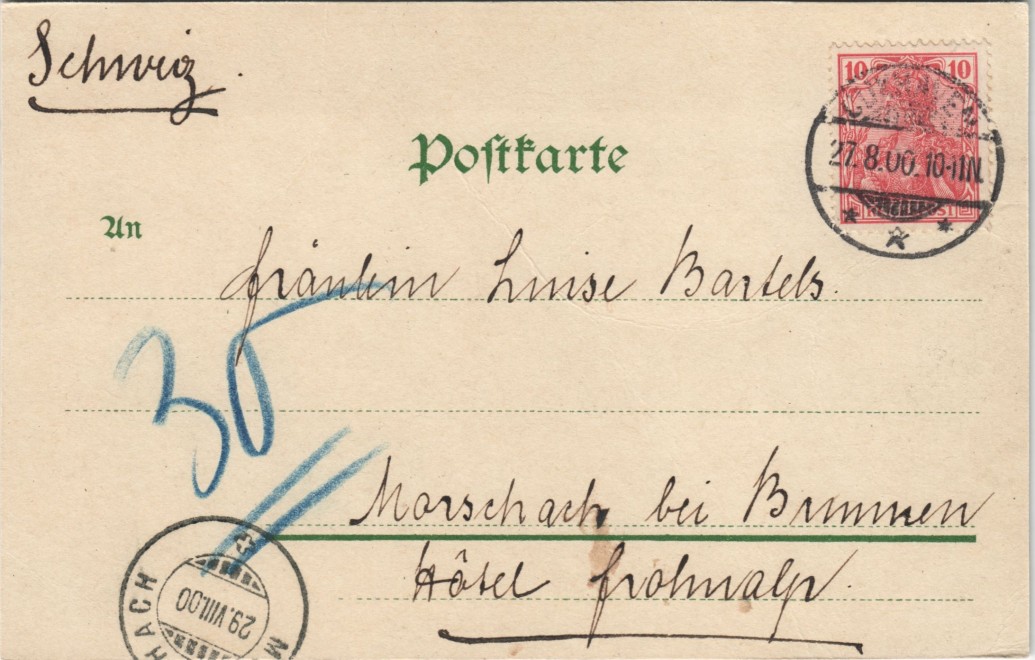 Schweiz.
10 10
27.8.00.10-11N.
REICHSPOST
Postkarte
An
Fräulein Luise Bartels.
30
Morschach bei Brunnen
Hôtel Frohnalp.
HACH M
29.VIII.00